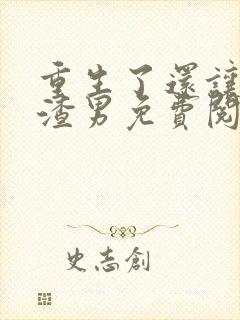 重生了還讓
渣男免費閱
史志創